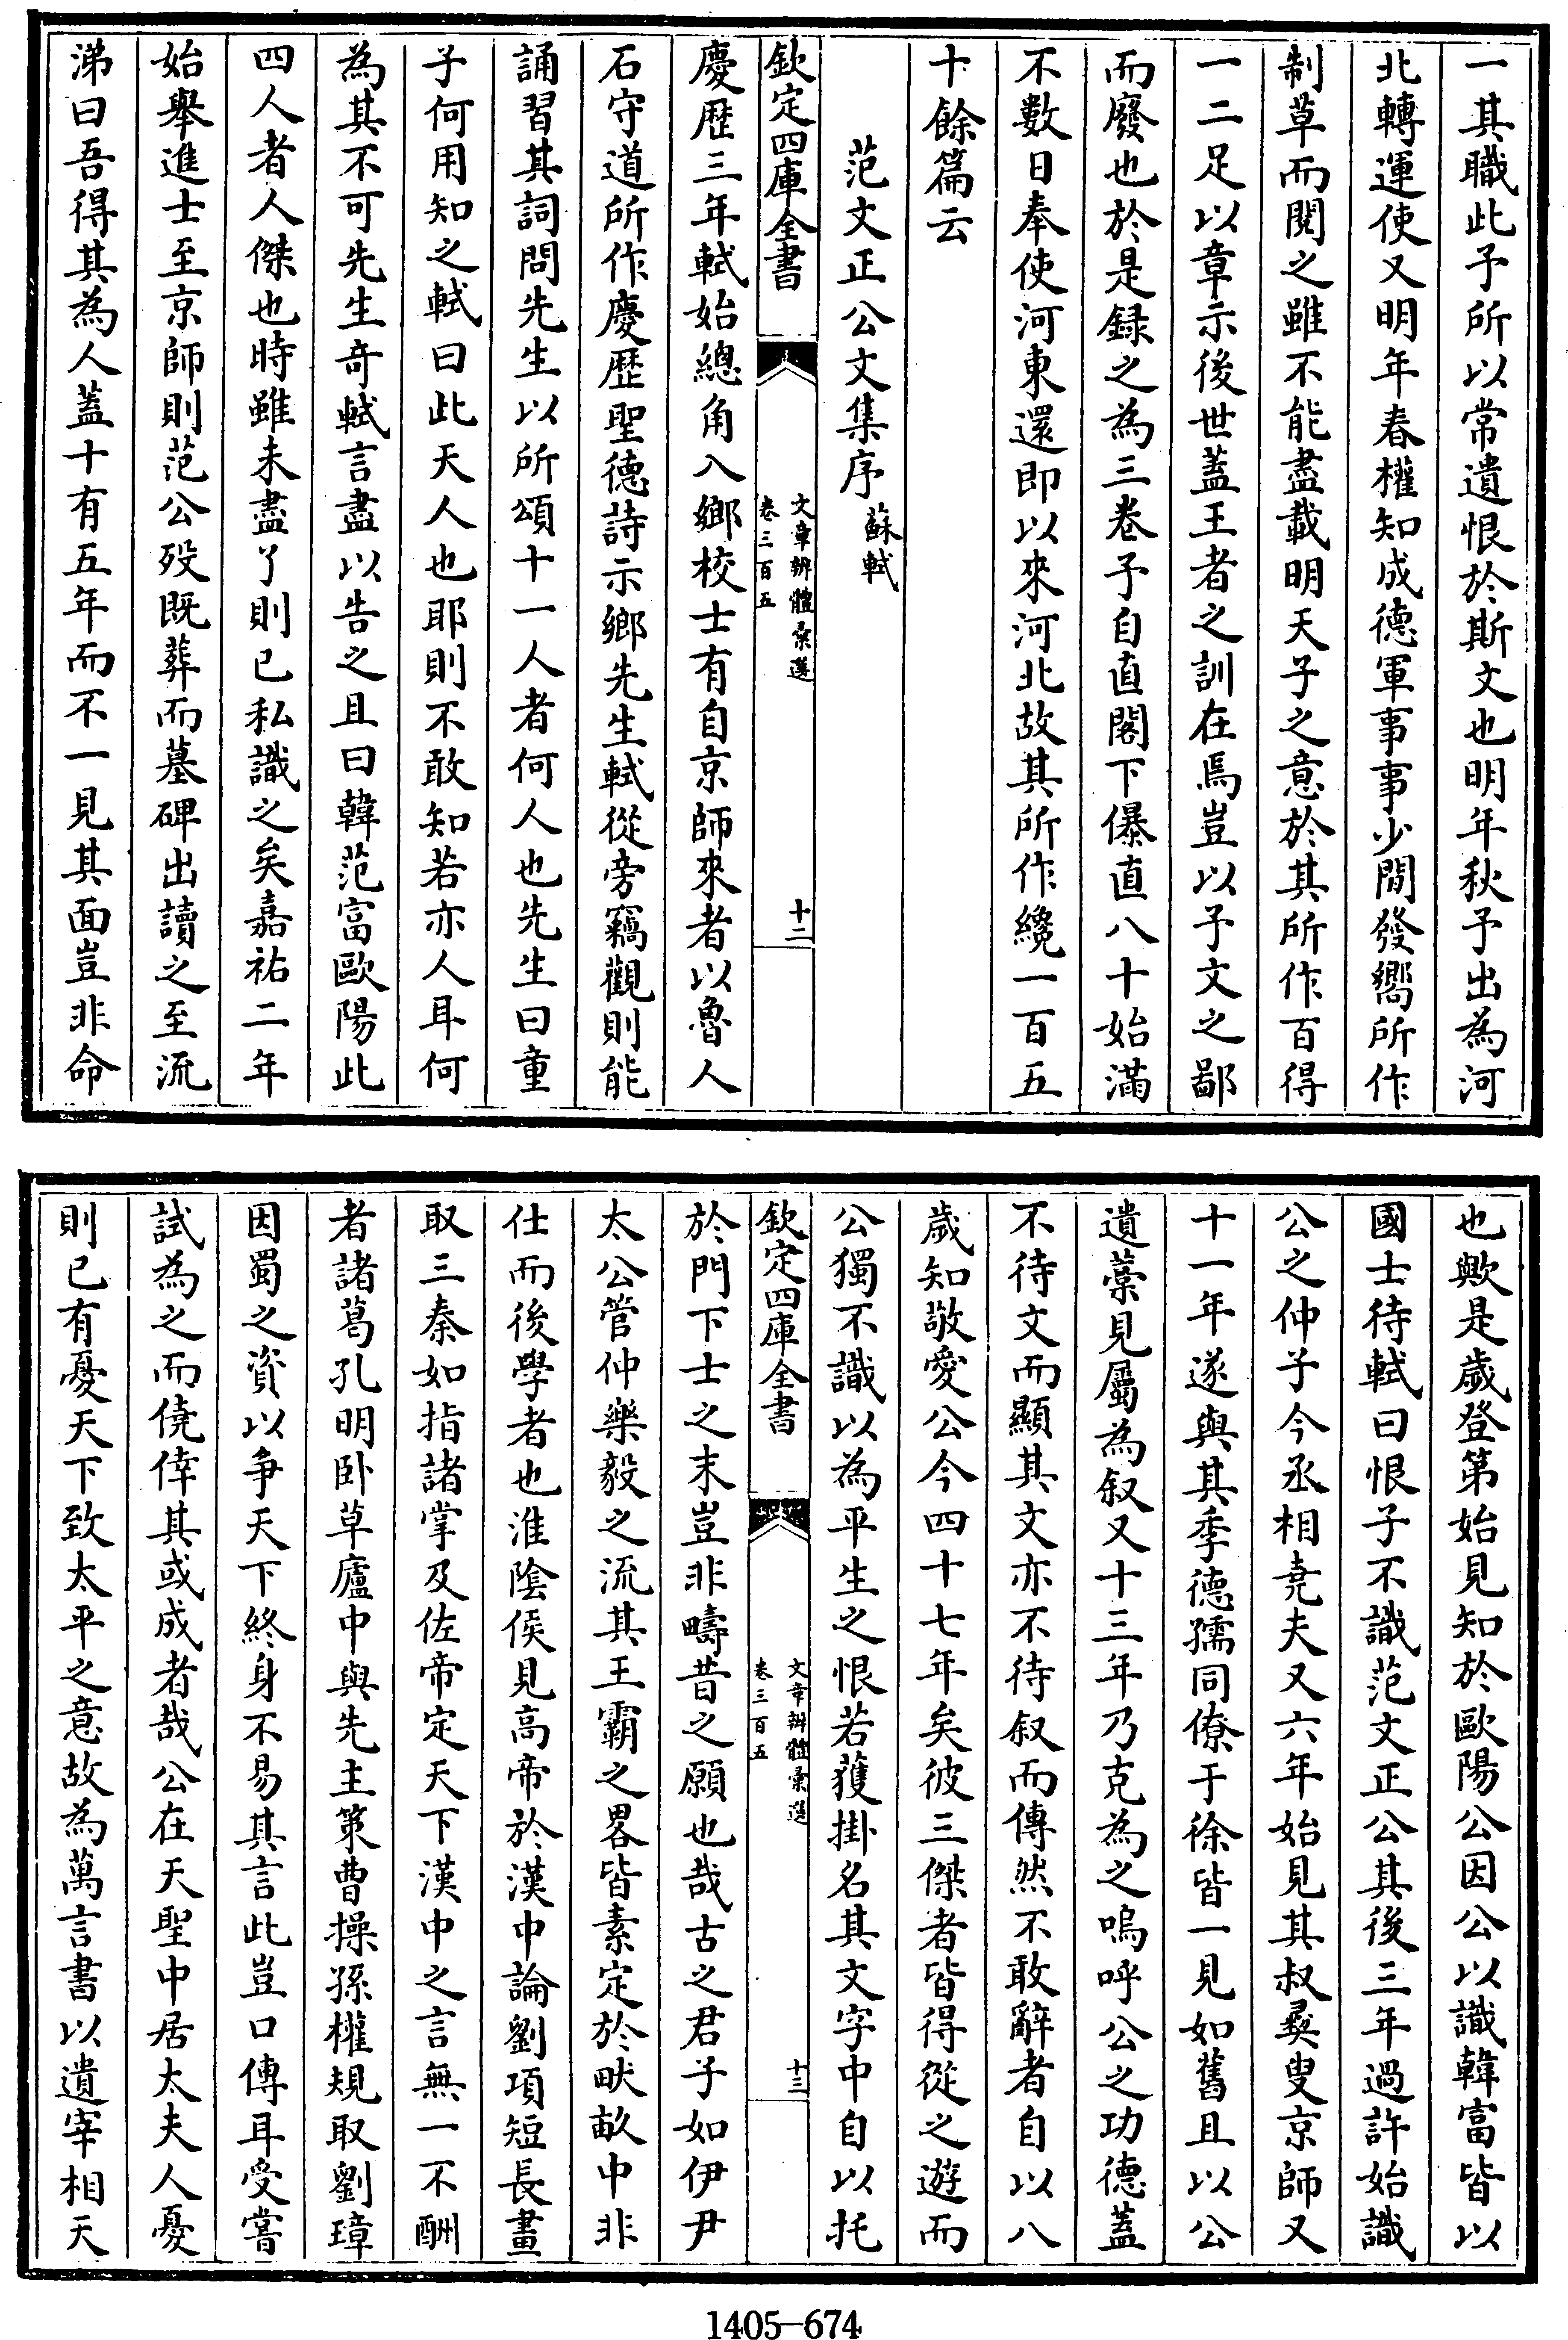 一其職此予所以常遺恨於斯文也明年秋予出為河
北轉運使又明年春權知成德軍事事少間發嚮所作
制草而閱之雖不能盡載明天子之意於其所作百得
一二足以章示後世蓋王者之訓在焉豈以予文之鄙
而廢也於是録之為三卷予自直閣下儤直八十始滿
不數日奉使河東還即以來河北故其所作纔一百五
十餘篇云
范文正公文集序 蘇軾
欽定四庫全書 文章辨體彙選 卷三百五 十二
慶歴三年軾始總角入鄉校士有自京師來者以魯人
石守道所作慶歴聖德詩示鄉先生軾從旁竊觀則能
誦習其詞問先生以所頌十一人者何人也先生曰童
子何用知之軾曰此天人也耶則不敢知若亦人耳何
為其不可先生奇軾言盡以告之且曰韓范富歐陽此
四人者人傑也時雖未盡了則已私識之矣嘉祐二年
始舉進士至京師則范公歿既葬而墓碑出讀之至流
涕曰吾得其為人蓋十有五年而不一見其面豈非命
也歟是歲登第始見知於歐陽公因公以識韓富皆以
國士待軾曰恨子不識范文正公其後三年過許始識
公之仲子今丞相堯夫又六年始見其叔彞叟京師又
十一年遂與其季德孺同僚于徐皆一見如舊且以公
遺藁見屬為叙又十三年乃克為之嗚呼公之功德蓋
不待文而顯其文亦不待叙而傳然不敢辭者自以八
歲知敬愛公今四十七年矣彼三傑者皆得從之遊而
公獨不識以為平生之恨若獲掛名其文字中自以托
欽定四庫全書 文章辨體彙選 卷三百五 十三
於門下士之末豈非疇昔之願也哉古之君子如伊尹
太公管仲樂毅之流其王霸之畧皆素定於畎畝中非
仕而後學者也淮陰侯見高帝於漢中論劉項短長畫
取三秦如指諸掌及佐帝定天下漢中之言無一不酬
者諸葛孔明卧草廬中與先主策曹操孫權規取劉璋
因蜀之資以爭天下終身不易其言此豈口傳耳受嘗
試為之而僥倖其或成者哉公在天聖中居太夫人憂
則已有憂天下致太平之意故為萬言書以遺宰相天
1405-674